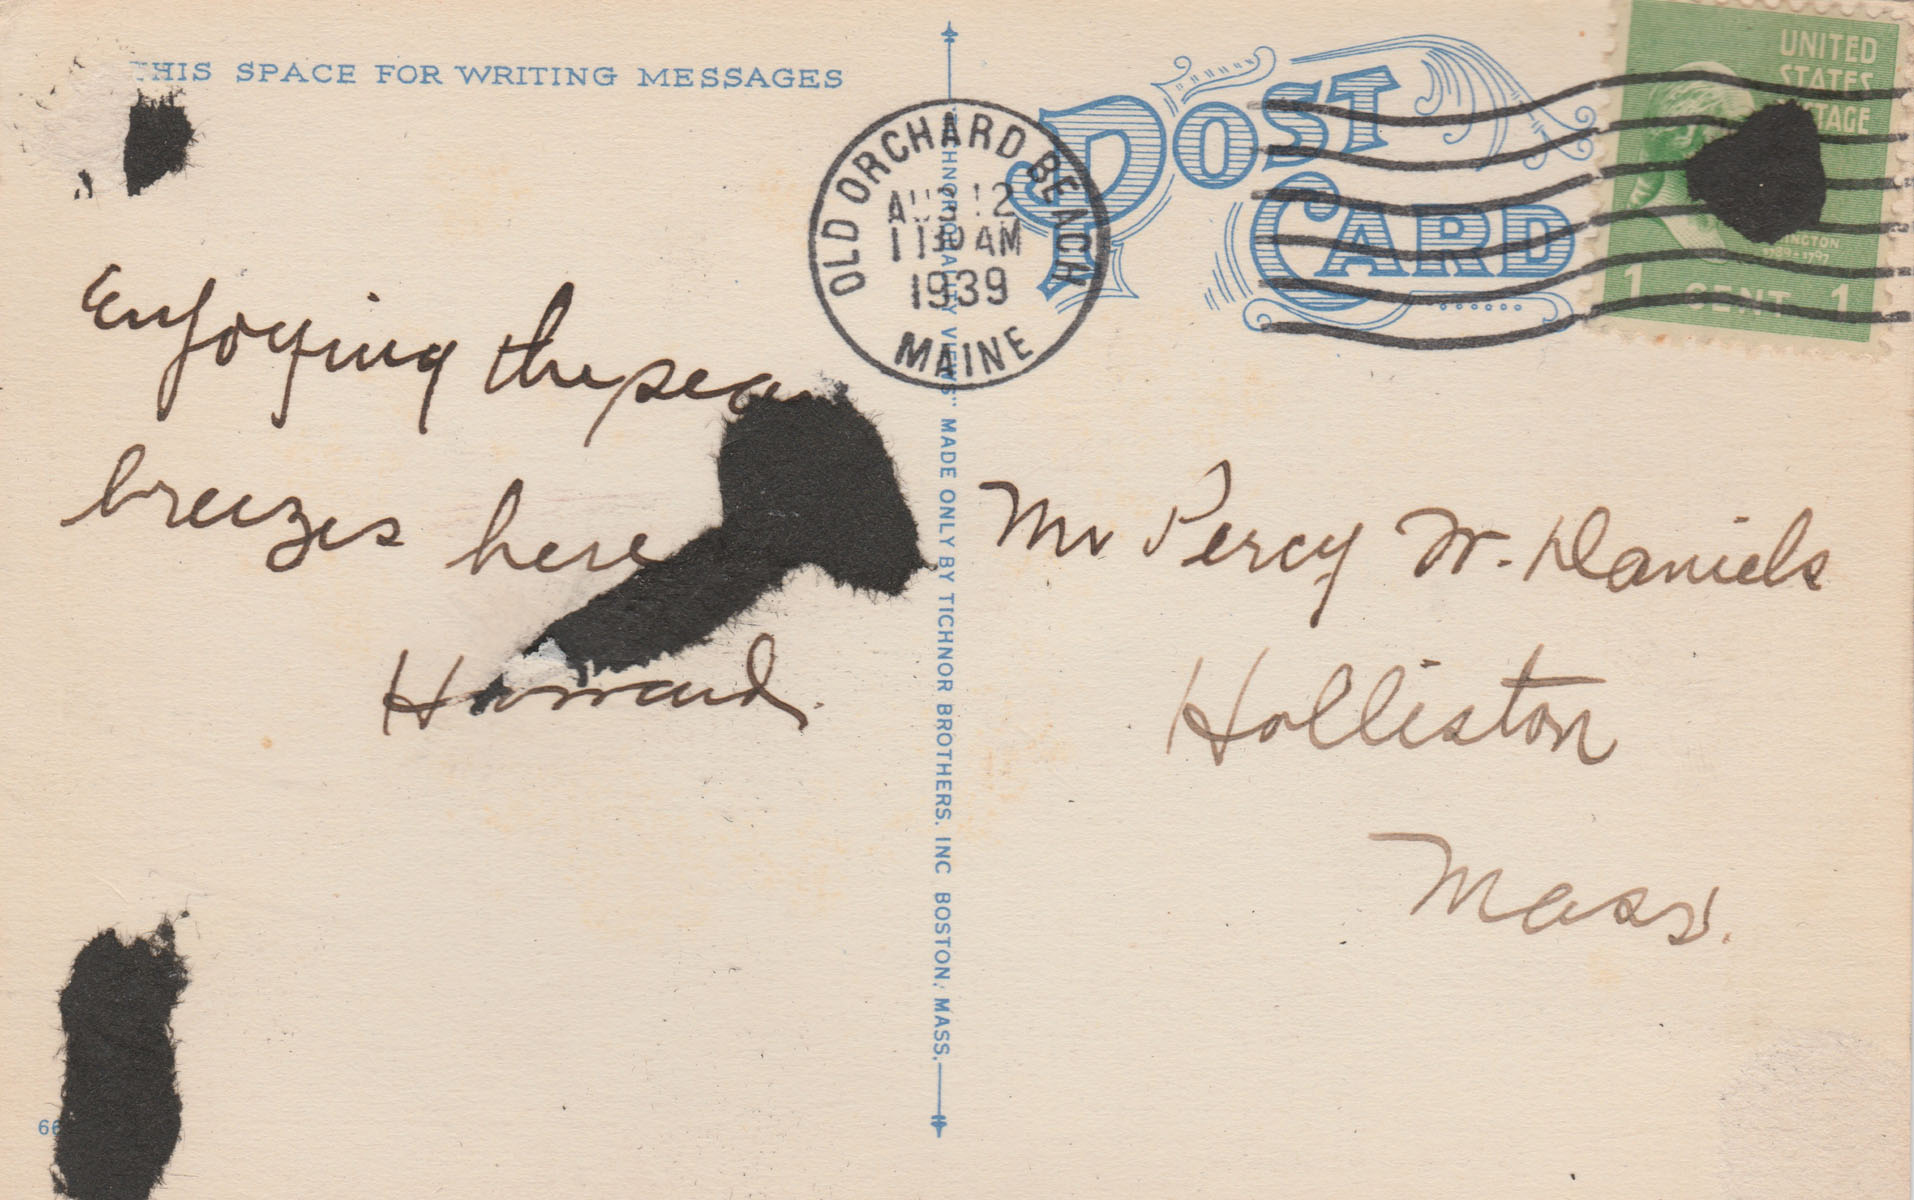 THIS SPACE FOR WRITING MESSAGES
POST
CARD
UNITED
STATES
POSTAGE
1 CENT 1
OLD ORCHARD BEACH
AUG 12
11 30 AM
1939
MAINE
Enjoying the sea
breezes here
Howard.
"TICHNOR QUALITY VIEWS" MADE ONLY BY TICHNOR BROTHERS. INC BOSTON, MASS.
Mr Percy W. Daniels
Holliston
Mass.